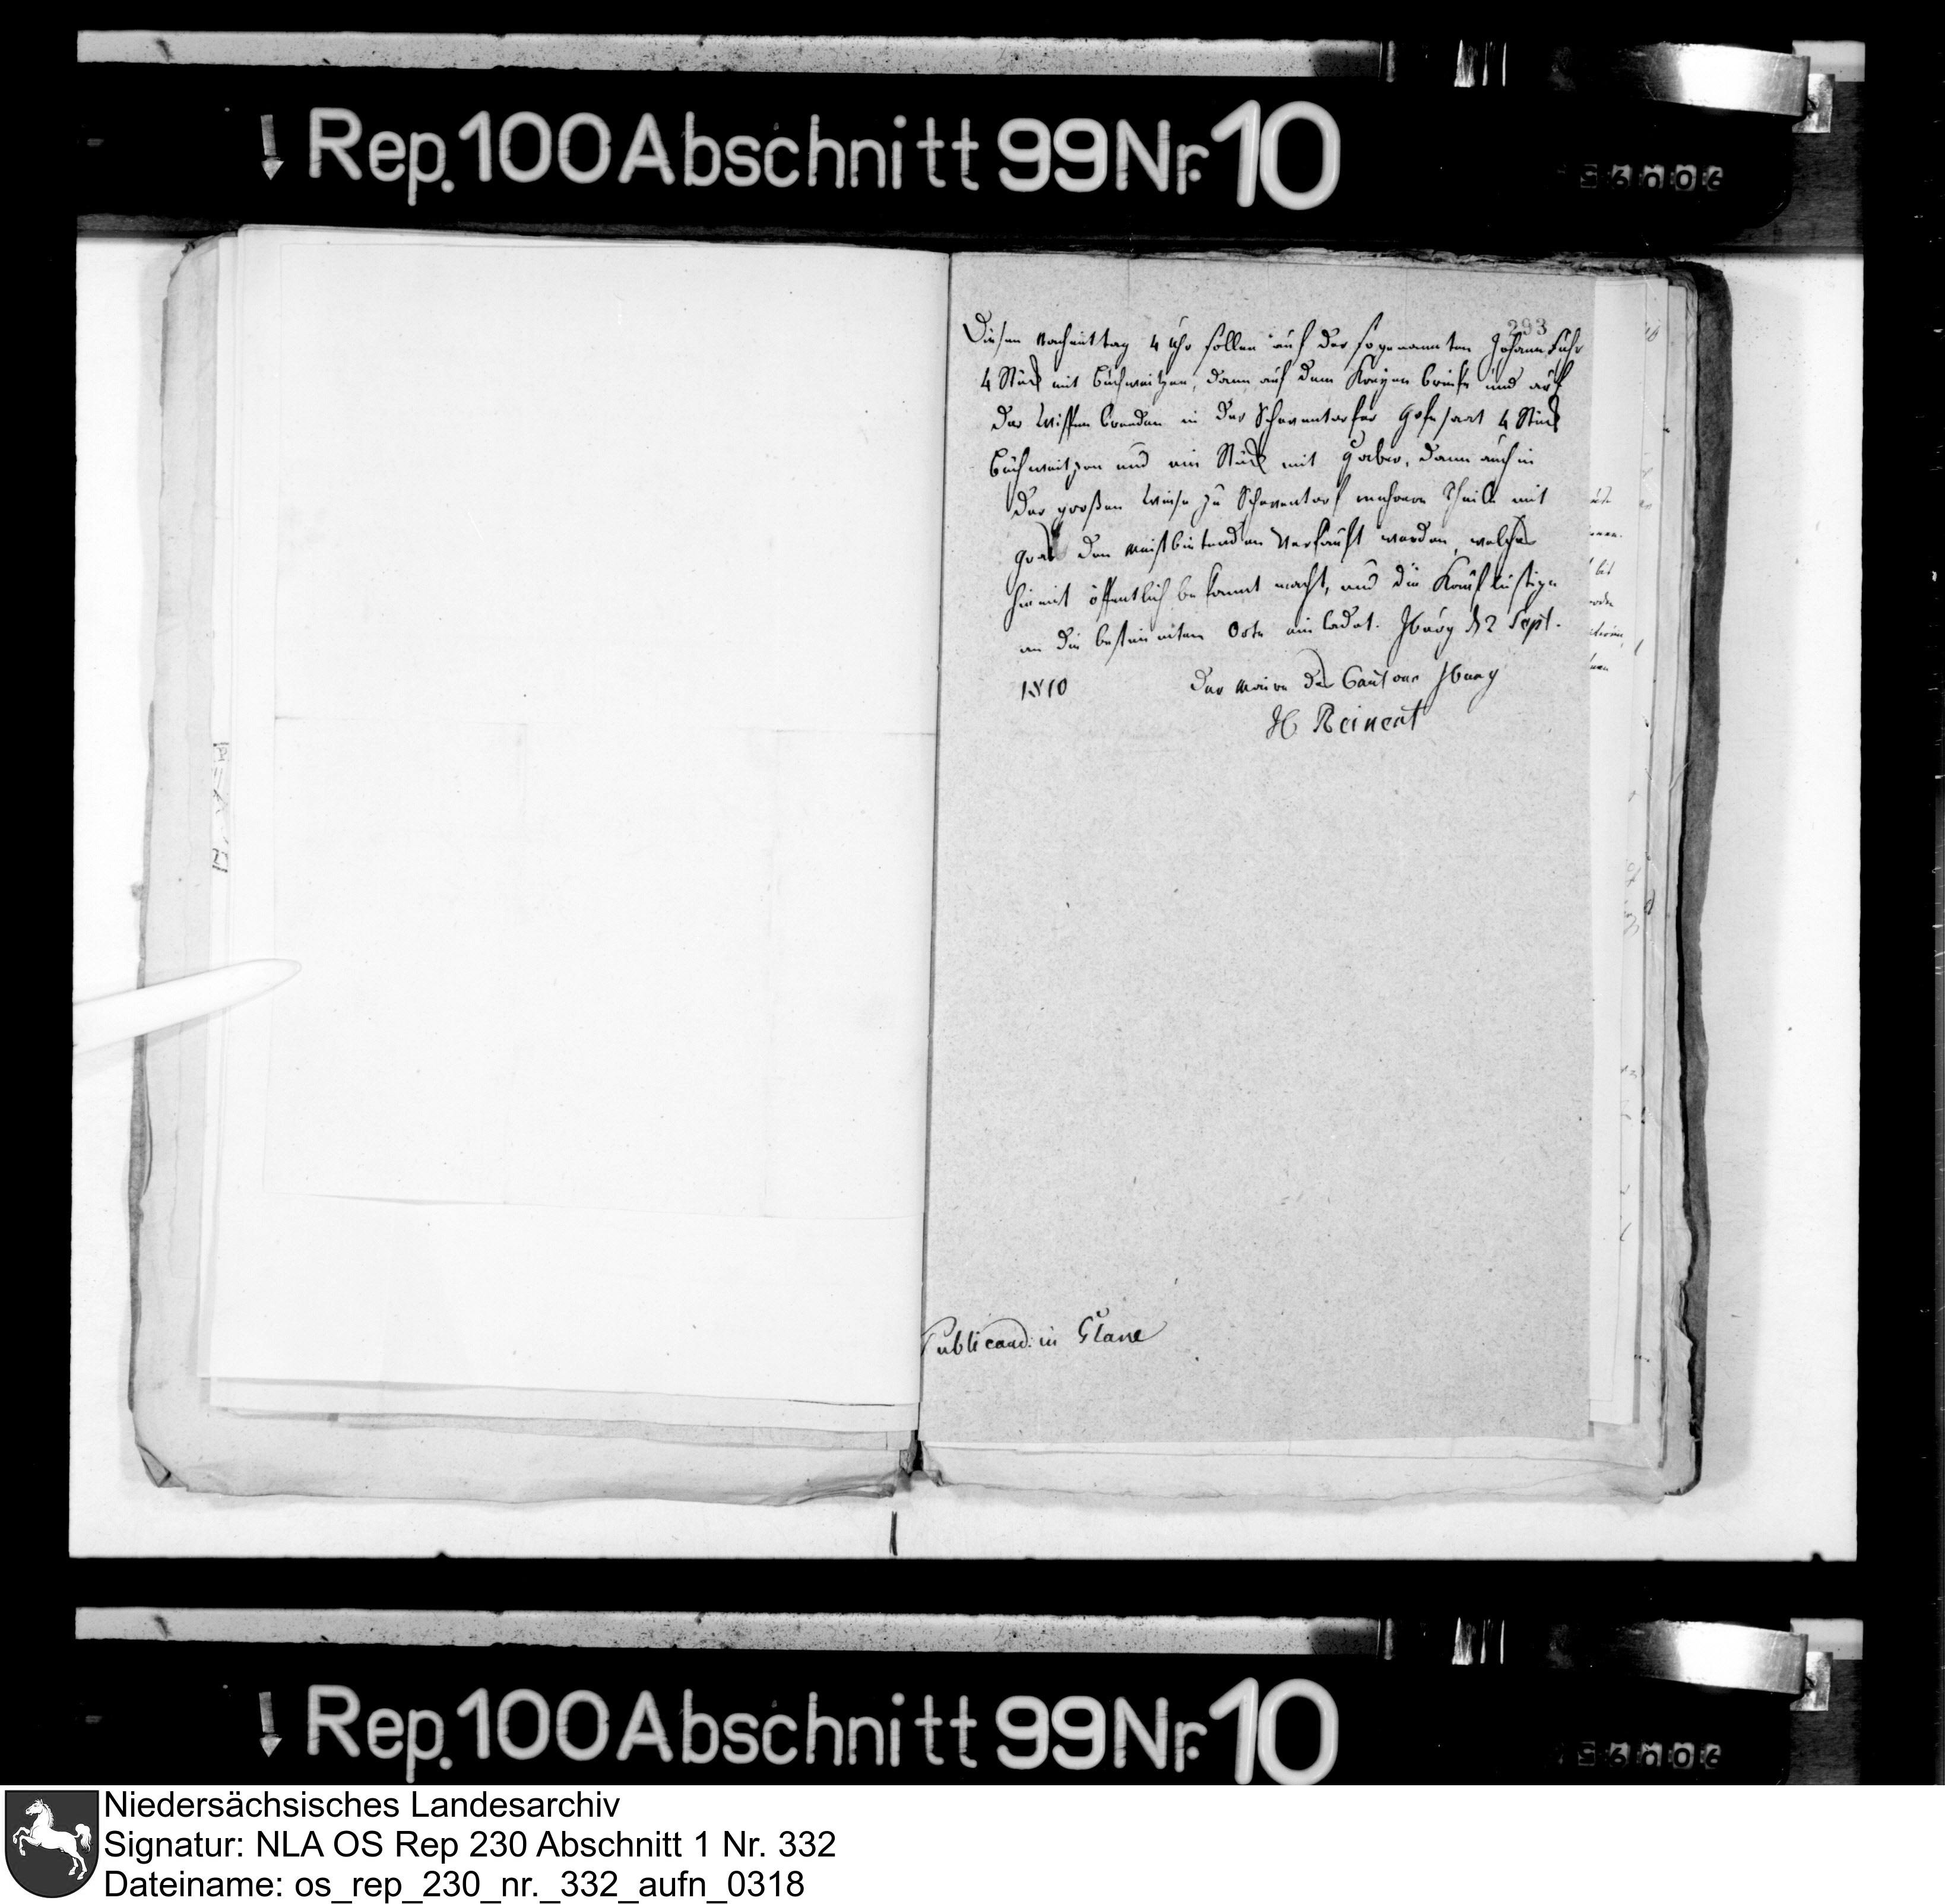 Rep. 100 Abschnitt 99 Nr. 10
293
Diesen Nachmittag 4 Uhr sollen auf der sogenannten Johann
4 Stück mit Buchweitzen, dann auf dem und auf
der in der Scheventorfer 4 Stück
Buchweitzen und ein Stück mit Haber, dann auch in
der großen Wiese zu Scheventorf mehrere Theile mit
Gras den Meistbietenden Verkauft werden, welches
hiemit öffentlich bekannt macht, und die Kauflustige
an die bestimmten Orte einladet. Iburg d 2 Sept.
1810 Der Maire des Cantons Iburg
Publicand: in Glane
Rep. 100 Abschnitt 99 Nr. 10
Niedersächsisches Landesarchiv
Signatur: NLA OS Rep 230 Abschnitt 1 Nr. 332
Dateiname: os_rep_230_nr._332_aufn_0318